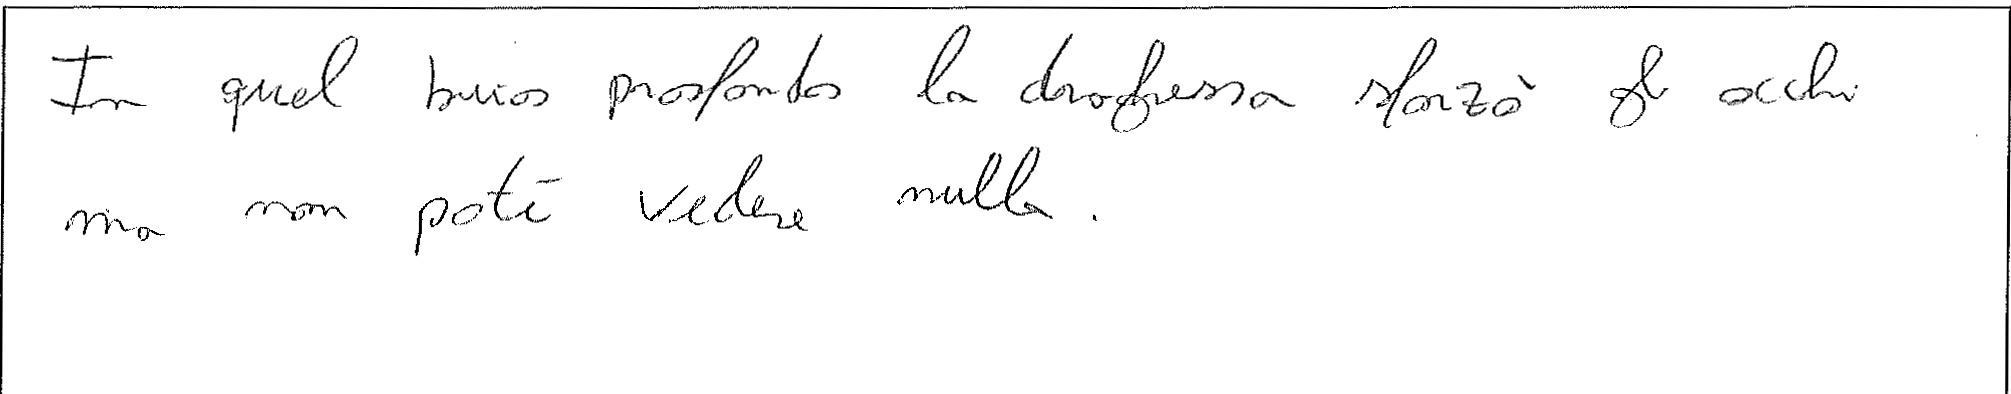 In quel buio profondo la dragessa sforzò gli occhi
ma non poté vedere nulla.